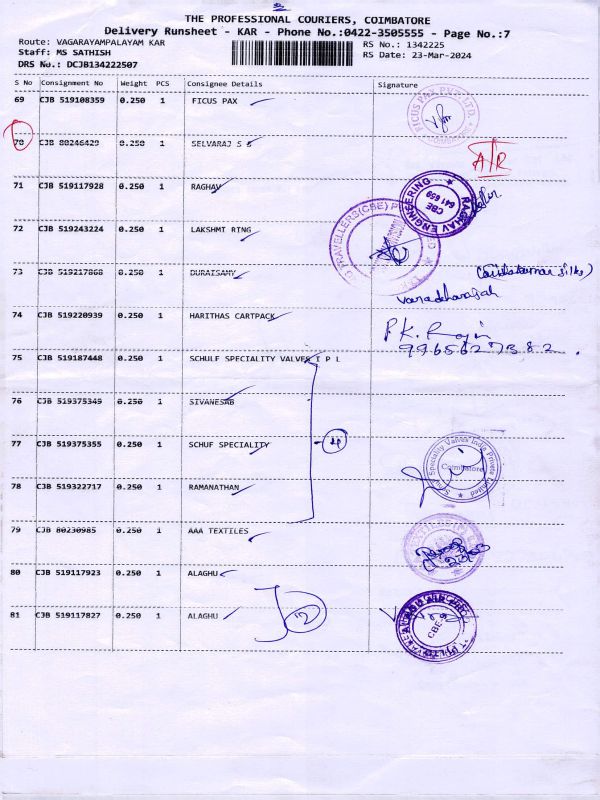 THE PROFESSIONAL COURIERS, COIMBATORE
Delivery Runsheet - KAR - Phone No.:0422-3505555 - Page No.:7
Route: VAGARAYAMPALAYAM KAR
RS No.: 1342225
Staff: MS SATHISH
RS Date: 23-Mar-2024
DRS No.: DCJB134222507
S No Consignment No Weight PCS Consignee Details Signature
69 CJB 519108359 0.250 1 FICUS PAX
FICUS PAX PVT LTD.
70 CJB 80246429 0.250 1 SELVARAJ S S
71 CJB 519117928 0.250 1 RAGHAV
RAGHAV ENGINEERING
CBE
641 659
72 CJB 519243224 0.250 1 LAKSHMI RING
TRAVELLERS(CBE) P
73 CJB 519217868 0.250 1 DURAISAMY
varadharajah
74 CJB 519220939 0.250 1 HARITHAS CARTPACK
P.K. Rajn
9965627382.
75 CJB 519187448 0.250 1 SCHULF SPECIALITY VALVES T P L
76 CJB 519375349 0.250 1 SIVANESAB
77 CJB 519375355 0.250 1 SCHUF SPECIALITY
Schuf Speciality Valves India Private Limited
Coimbatore
78 CJB 519322717 0.250 1 RAMANATHAN
79 CJB 80230985 0.250 1 AAA TEXTILES
80 CJB 519117923 0.250 1 ALAGHU
81 CJB 519117827 0.250 1 ALAGHU
12
CBE-